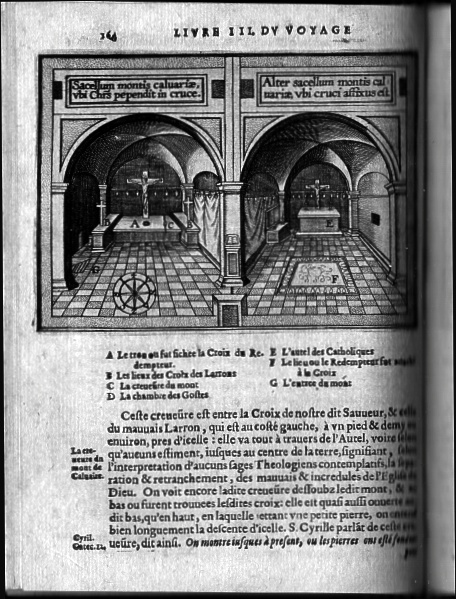 264
LIVRE III. DV VOYAGE
Sacellum montis caluariæ,
vbi Chrs pependit in cruce.
Alter sacellum montis cal
uariæ vbi cruci affixus est
A
C
E
G
F
A Le trou ou fut fichée la Croix du Re-
dempteur.
B Les lieux des Croix des Larrons
C La creueûre du mont
D La chambre des Gostes
E L'autel des Catholiques
F Le lieu ou le Redempteur fut
à la Croix
G L'entrée du mont
Ceste creueûre est entre la Croix de nostre dit Sauueur, &
du mauuais Larron, qui est au costé gauche, à vn pied & demy
enuiron, pres d'icelle: elle va tout à trauers de l'Autel, voire
qu'aucuns estiment, iusques au centre de la terre, signifiant,
l'interpretation d'aucuns sages Theologiens contemplatifs, la
ration & retranchement, des mauuais & incredules de l'Eglise
Dieu. On voit encore ladite creueûre dessoubz ledit mont, &
bas ou furent trouuees lesdites croix: elle est quasi aussi
dit bas, qu'en haut, en laquelle iettant vne petite pierre, on
bien longuement la descente d'icelle. S. Cyrille parlãt de ceste
ueûre, dit ainsi. On monstre iusques à present, ou les pierres ont esté
La cre-
ueure du
mont de
Caluaire.
Cyril.
Catec. 12.